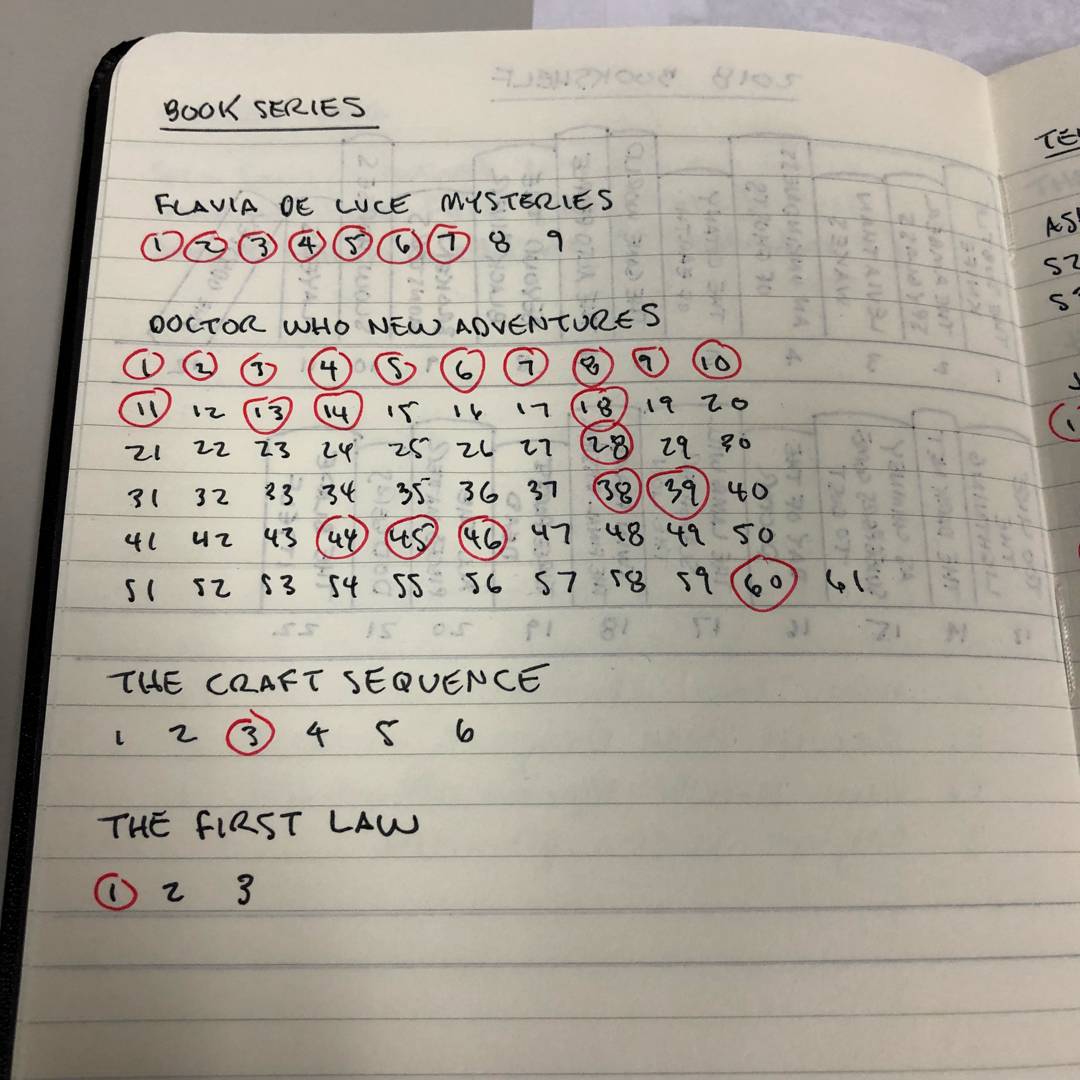 BOOK SERIES
FLAVIA DE LUCE MYSTERIES
1 2 3 4 5 6 7 8 9
DOCTOR WHO NEW ADVENTURES
1 2 3 4 5 6 7 8 9 10
11 12 13 14 15 16 17 18 19 20
21 22 23 24 25 26 27 28 29 30
31 32 33 34 35 36 37 38 39 40
41 42 43 44 45 46 47 48 49 50
51 52 53 54 55 56 57 58 59 60 61
THE CRAFT SEQUENCE
1 2 3 4 5 6
THE FIRST LAW
1 2 3